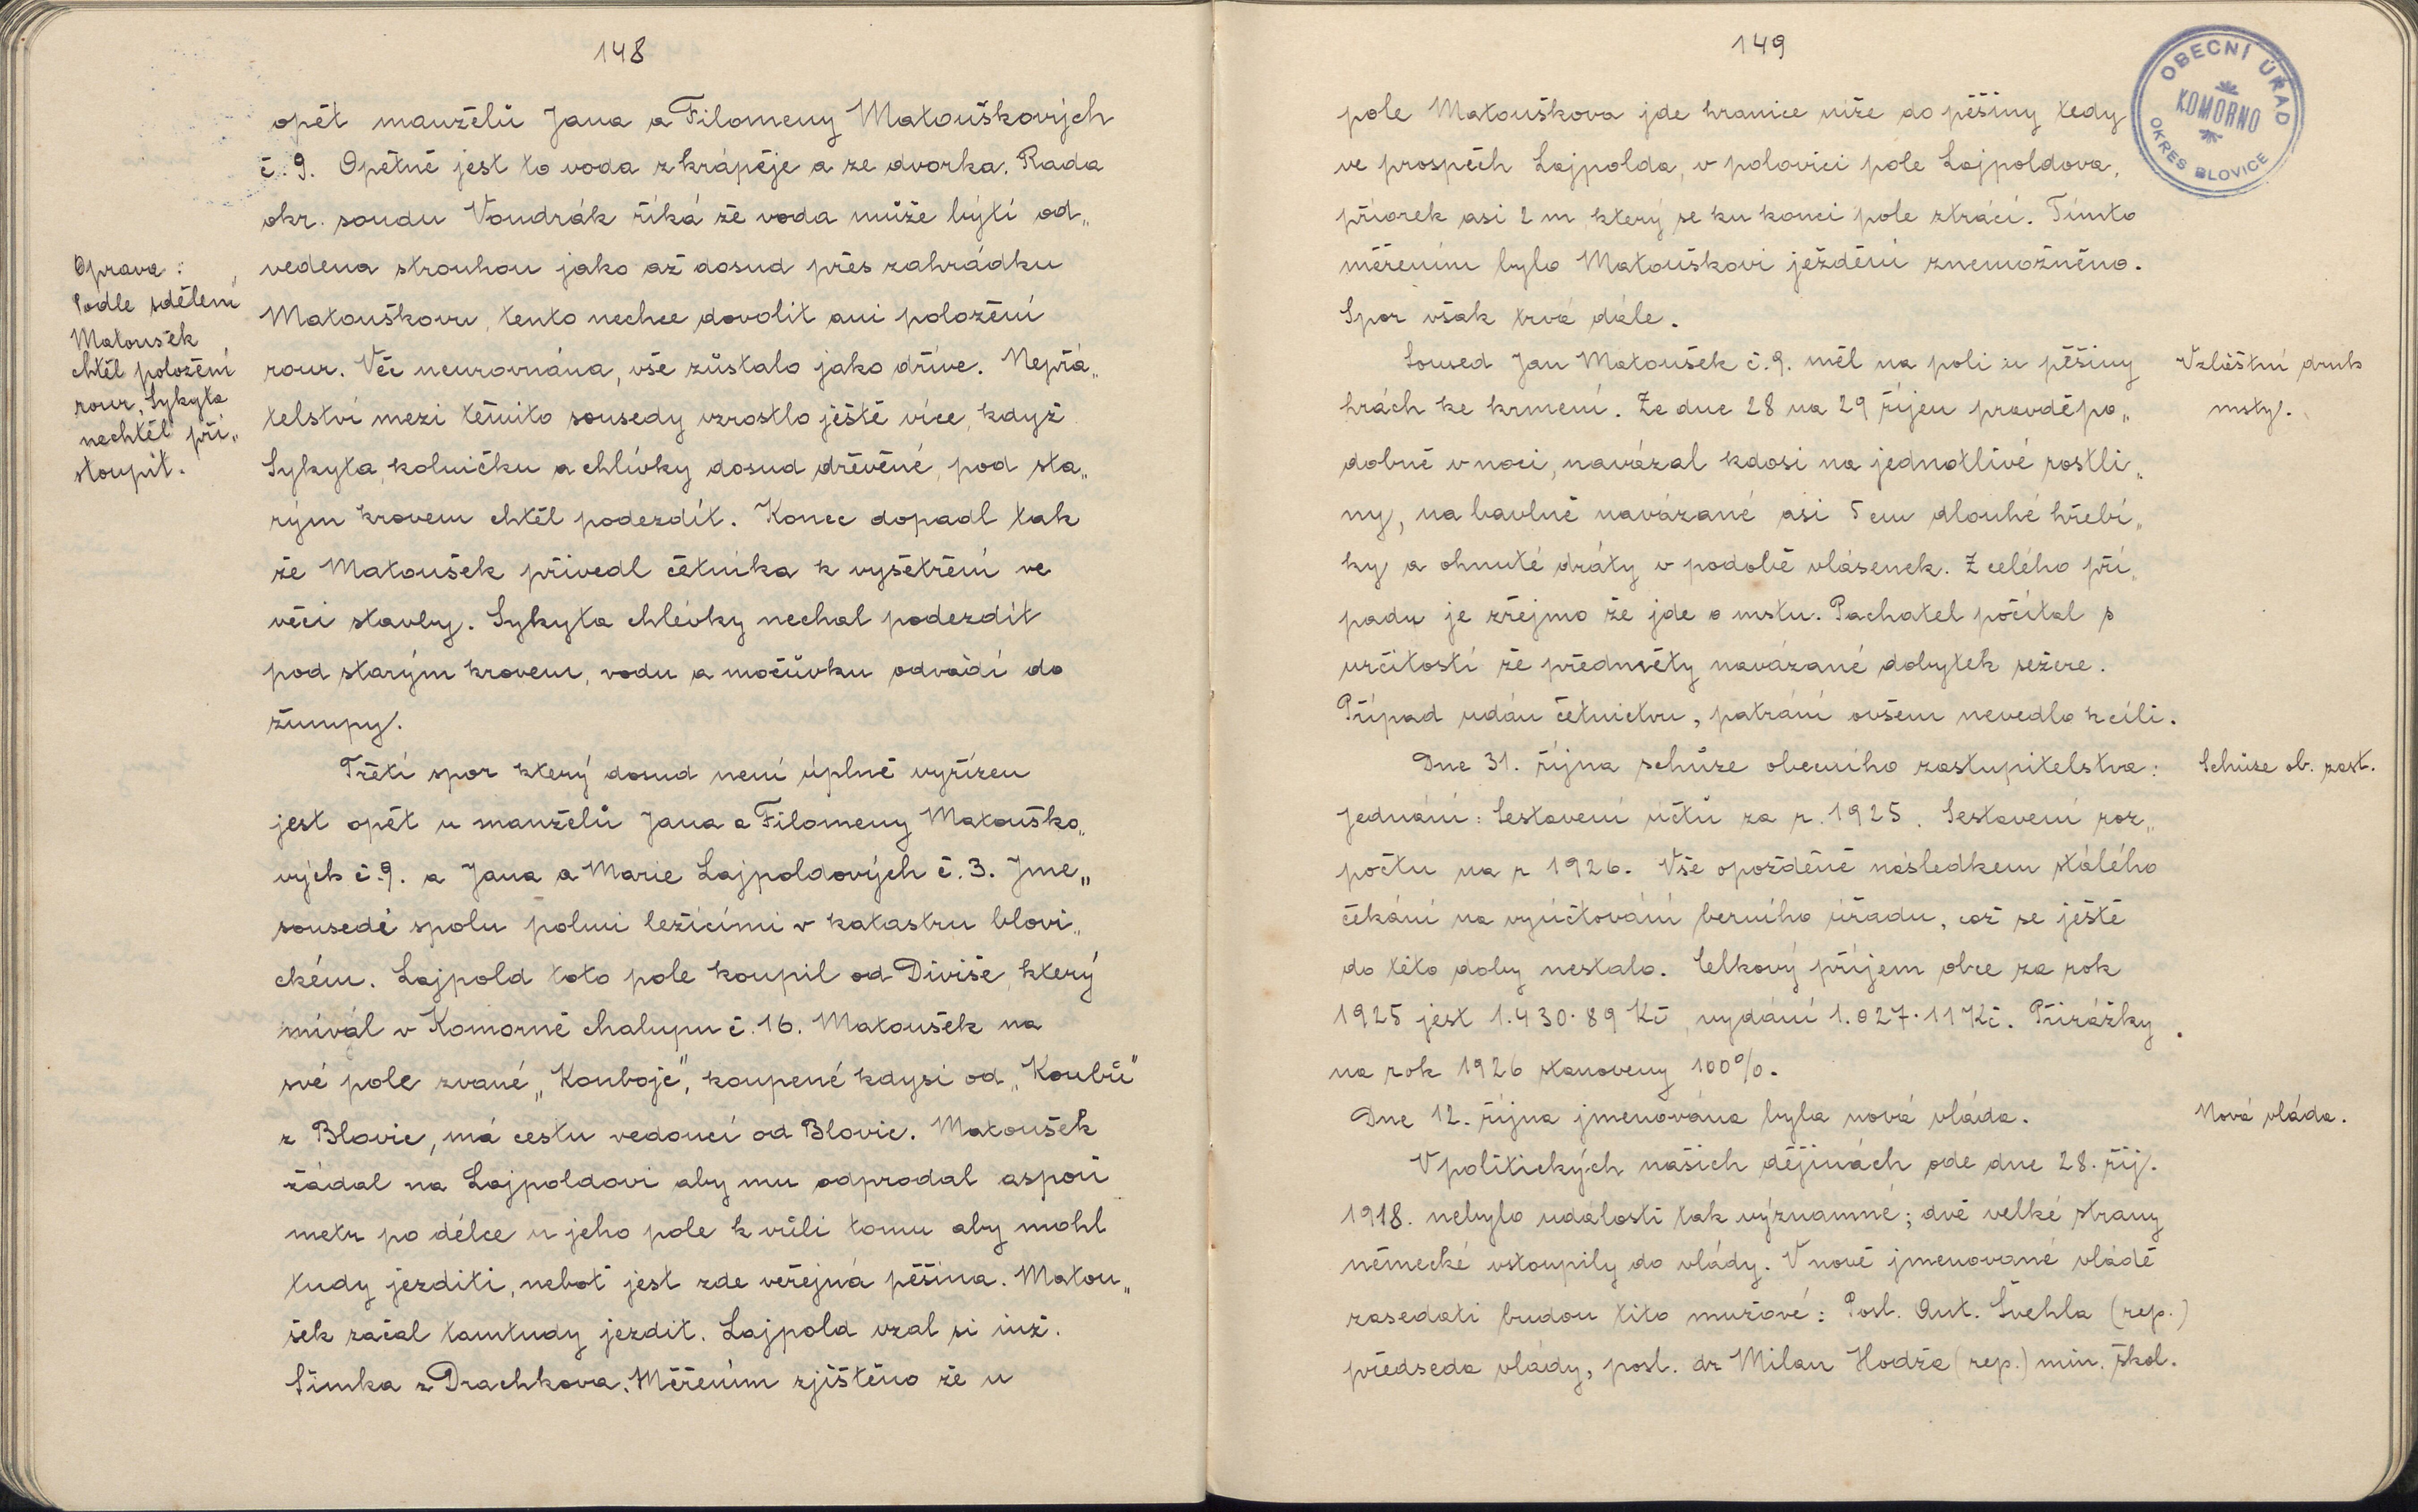 148
opět manželů Jana a Filomeny Matouškových
č. 9. Opětně jest to voda z krápěje a ze dvorka. Rada
okr. soudu Voudrák říká že voda může býti od„
vedena strouhou jako až dosud přes zahrádku
Matouškovu, tento nechce dovolit ani položení
rour. Věc neurovnána, vše zůstalo jako dříve. Nepřá„
telství mezi těmito sousedy vzrostlo ještě více, když
Sykyta, kolničku a chlívky dosud dřevěné, pod sta„
rým krovem chtěl podezdít. Konec dopadl tak
že Matoušek přivedl četníka k vyšetření ve
věci stavby. Sykyta chlévky nechal podezdít
pod starým krovem, vodu a močůvku odvádí do
žumpy.
Třetí spor který dosud není úplně vyřízen
jest opět u manželů Jana a Filomeny Matouško„
vých č. 9. a Jana a Marie Lajpoldových č. 3. Jme„
sousedé spolu polmi ležícími v katastru blovi„
ckém. Lajpold toto pole koupil od Diviše, který
míval v Komorně chalupu č. 16. Matoušek na
své pole zvané „Kouboje", koupené kdysi od „Koubů"
z Blovic, má cestu vedoucí od Blovic. Matoušek
žádal na Lajpoldovi aby mu odprodal aspoň
metr po délce u jeho pole k vůli tomu aby mohl
tudy jezditi, neboť jest zde veřejná pěšina. Matou„
šek začal tamtudy jezdit. Lajpold vzal si inž.
Šimka z Drachkova. Měřením zjištěno že u
Oprava:
Podle sdělení
Matoušek
chtěl položení
rour, Sykyta
nechtěl při„
stoupit.
149
OBECNÍ ÚŘAD
KOMORNO
OKRES BLOVICE
pole Matouškova jde hranice níže do pěšiny tedy
ve prospěch Lajpolda, v polovici pole Lajpoldova,
příorek asi 2 m který se ku konci pole ztrácí. Tímto
měřením bylo Matouškovi ježdění znemožněno.
Spor však trvá dále.
Soused Jan Matoušek č. 9. měl na poli u pěšiny
hrách ke krmení. Ze dne 28 na 29 říjen pravděpo„
dobně v noci, navázal kdosi na jednotlivé rostli„
ny, na bavlně navázané asi 5 cm dlouhé hřebí„
ky a ohnuté dráty v podobě vlásenek. Z celého pří„
padu je zřejmo že jde o mstu. Pachatel počítal s
určitostí že předměty navázané dobytek sežere.
Případ udán četnictvu, pátrání ovšem nevedlo k cíli.
Dne 31. října schůze obecního zastupitelstva:
jednání: Sestavení účtů za r. 1925. Sestavení roz„
počtu na r 1926. Vše opožděně následkem stálého
čekání na vyúčtování berního úřadu, což se ještě
do této doby nestalo. Celkový příjem obce za rok
1925 jest 1.430·89 Kč, vydání 1.027·11 Kč. Přirážky
na rok 1926 stanoveny 100%.
Dne 12. října jmenována byla nová vláda.
V politických našich dějinách ode dne 28. říj.
1918. nebylo události tak významné; dvě velké strany
německé vstoupily do vlády. V nově jmenované vládě
zasedati budou tito mužové: Posl. Ant. Švehla (rep.)
předseda vlády, posl. dr Milan Hodža (rep.) min. škol.
Vzláštní druh
msty.
Schůze ob. zast.
Nová vláda.